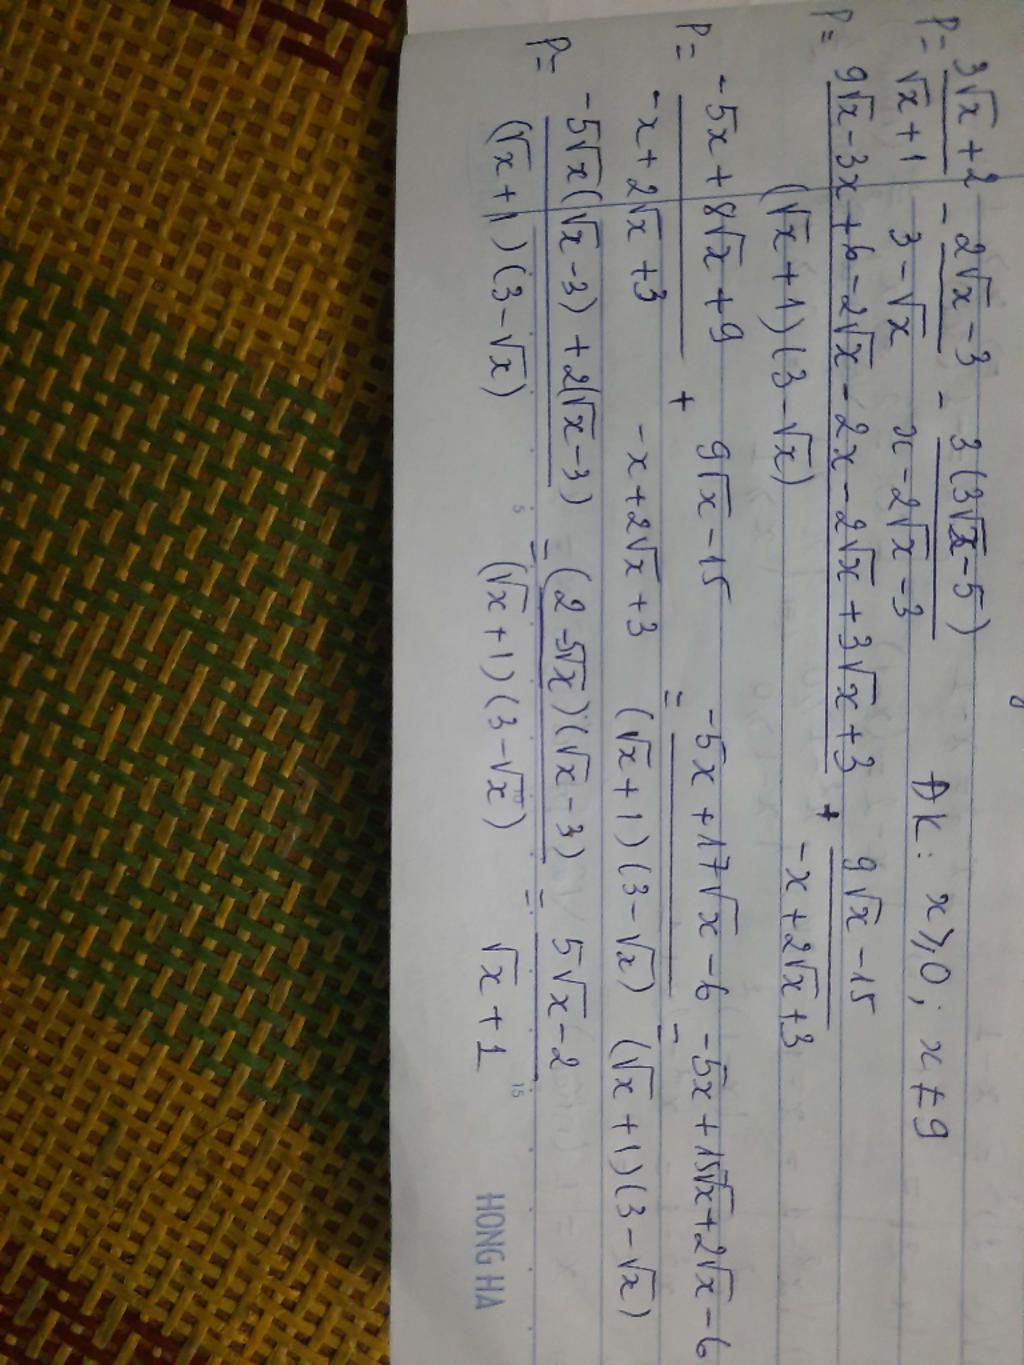 P = (3√x + 2)/(√x + 1) - (2√x - 3)/(3 - √x) - 3(3√x - 5)/(x - 2√x - 3) ĐK: x ⩾ 0; x ≠ 9
P = (9√x - 3x + 6 - 2√x - 2x - 2√x + 3√x + 3)/((√x + 1)(3 - √x)) + (9√x - 15)/(-x + 2√x + 3)
P = (-5x + 8√x + 9)/(-x + 2√x + 3) + (9√x - 15)/(-x + 2√x + 3) = (-5x + 17√x - 6)/((√x + 1)(3 - √x)) = (-5x + 15√x + 2√x - 6)/((√x + 1)(3 - √x))
P = (-5√x(√x - 3) + 2(√x - 3))/((√x + 1)(3 - √x)) = ((2 - 5√x)(√x - 3))/((√x + 1)(3 - √x)) = (5√x - 2)/(√x + 1)
5 10 15
HONG HA